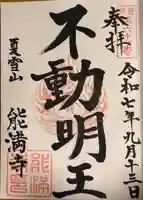 奉拝
令和七年九月十三日
不動明王
夏雪山
能満寺